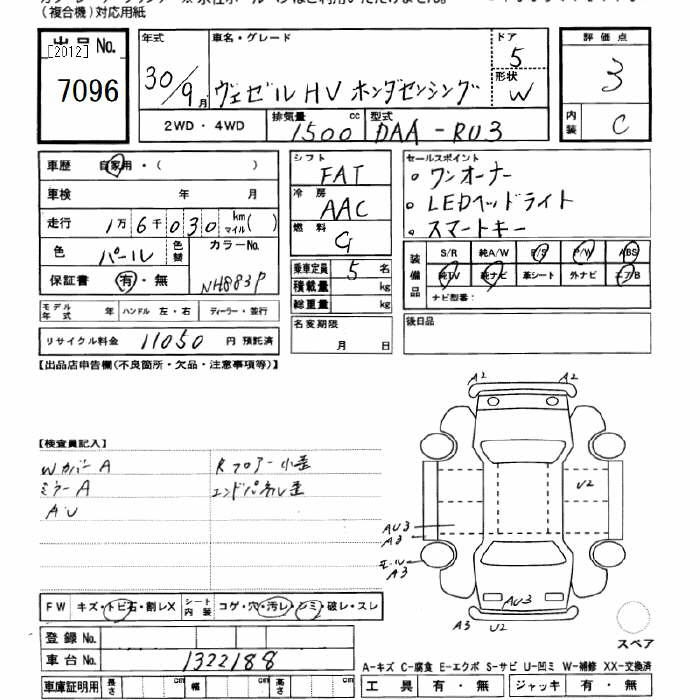 (複合機)対応用紙
出品No.
[2012]
7096
年式
30/9月
車名・グレード
ヴェゼル HV ホンダセンシング
ドア
5
形状
W
評価点
3
内装
C
2WD・4WD
排気量
1500 cc
型式
DAA-RU3
車歴 自家用・( )
車検 年 月
走行 1万6千030 km マイル( )
色 パール 色替 カラーNo.
NH883P
保証書 有・無
モデル年式 年 ハンドル 左・右 ディーラー・並行
リサイクル料金 11050 円 預託済
シフト
FAT
冷房
AAC
燃料
G
乗車定員 5 名
積載量 kg
総重量 kg
名変期限
月 日
セールスポイント
ワンオーナー
LEDヘッドライト
スマートキー
装備品
S/R 純A/W P/S P/W ABS
純TV 純ナビ 革シート 外ナビ エアB
ナビ型番:
後日品
【出品店申告欄(不良箇所・欠品・注意事項等)】
【検査員記入】
Wカバー A
ミラー A
AU
Rフロアー小歪
エンドパネル歪
A2 A2
U2
AU3
A3
モール
A3
AU3
A3 U2
スペア
FW キズ・トビ石・割レX シート内装 コゲ・穴・汚レ・シミ・破レ・スレ
登録No.
車台No. 1322188
車庫証明用 長さ cm 幅 cm 高さ cm
A-キズ C-腐食 E-エクボ S-サビ U-凹ミ W-補修 XX-交換済
工具 有・無 ジャッキ 有・無